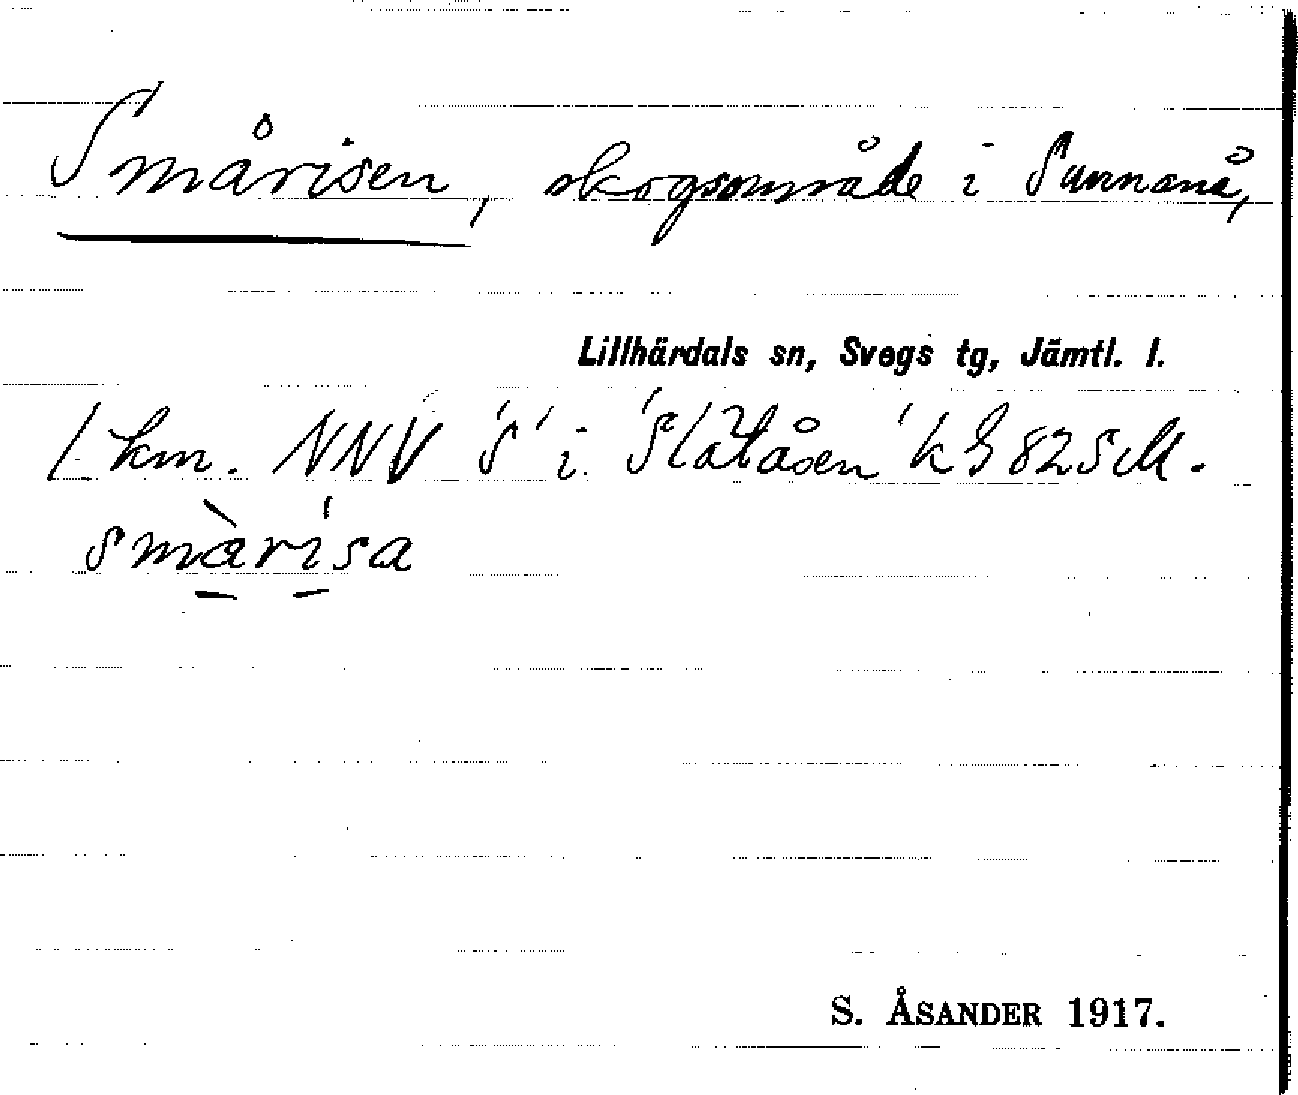 Smårisen, skogsområde i Sunnanå,
Lillhärdals sn, Svegs tg, Jämtl. l.
1 km. NNV 'S' i 'Slåtåsen' k G 82 SM.
smàrísa
S. ÅSANDER 1917.